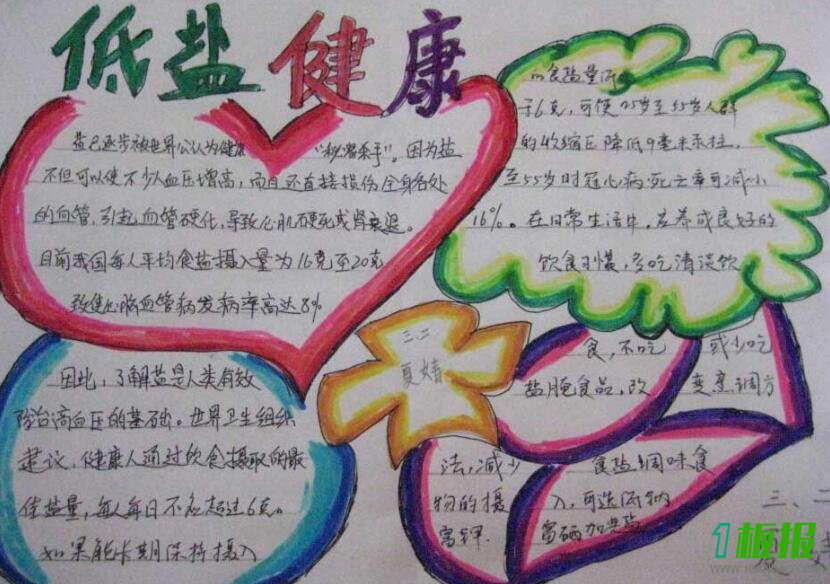 低盐健康
盐已逐步被世界公认为健康 “秘密杀手”。因为盐
不但可以使不少人血压增高，而且还直接损伤全身各处
的血管，引起血管硬化，导致心肌梗死或肾衰退。
目前我国每人平均食盐摄入量为16克至20克
致使心脑血管病发病率高达8%
因此，了解盐是人类有效
防治高血压的基础。世界卫生组织
建议，健康人通过饮食摄取的最
佳盐量，每人每日不应超过6克。
如果能长期保持摄入
的食盐量
于6克，可使25岁至55岁人群
的收缩压降低9毫米汞柱，
至55岁时冠心病死亡率可减小
16%。在日常生活中，应养成良好的
饮食习惯，多吃清淡饮
食，不吃 或少吃
盐腌食品，改 变烹调方
法，减少 食盐调味食
物的摄 入，可选低钠
高钾 富硒加
三、二
夏婧
三、二
夏婧
1板报